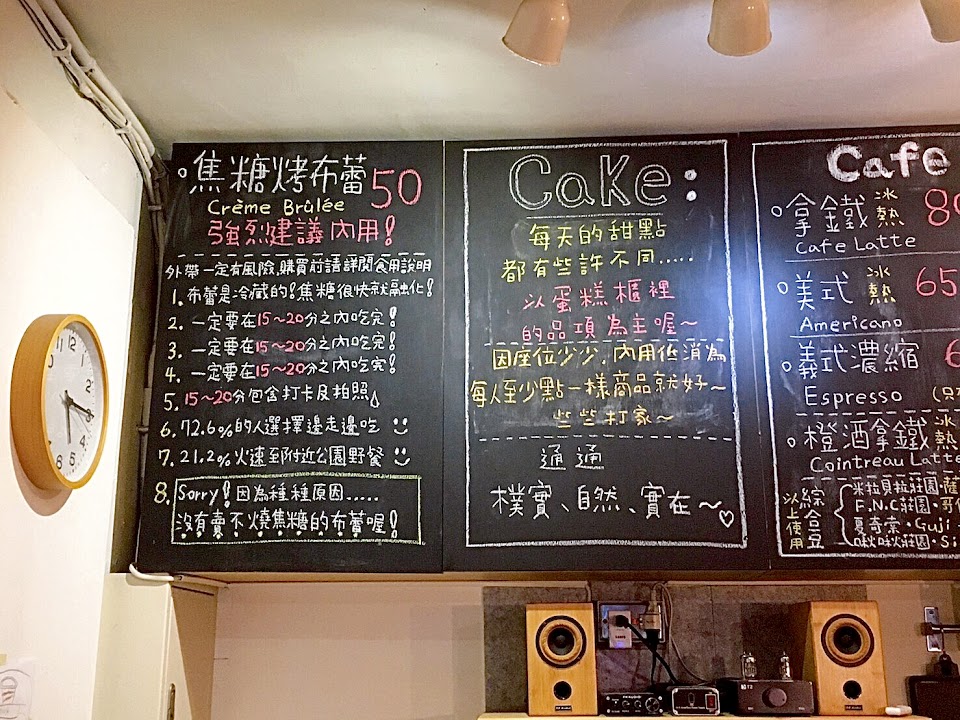 焦糖烤布蕾 50
Crème Brûlée
強烈建議內用!
外帶一定有風險,購買前請詳閱食用說明
1. 布蕾是冷藏的!焦糖很快就融化!
2. 一定要在15~20分之內吃完!
3. 一定要在15~20分之內吃完!
4. 一定要在15~20分之內吃完!
5. 15~20分包含打卡及拍照
6. 72.6%的人選擇邊走邊吃
7. 21.2%火速至附近公園野餐
8. Sorry!因為種種原因.....
沒有賣不燒焦糖的布蕾喔!
Cake:
每天的甜點
都有些許不同.....
以蛋糕櫃裡
的品項為主喔~
因座位少少,內用低消為
每人至少點一樣商品就好~
些些打家~
通通
樸實、自然、實在~♡
Cafe
拿鐵 冰 熱
Cafe Latte
美式 冰 熱 65
Americano
義式濃縮 6
Espresso
橙酒拿鐵 冰 熱
Cointreau Latte
以上使用 綜合豆
米拉貝拉莊園·
F.N.C莊園·
夏奇索·Guji
啾啾火莊園·Si